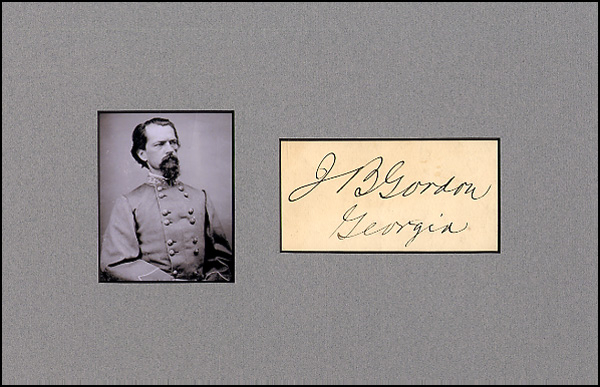 J B Gordon
Georgia